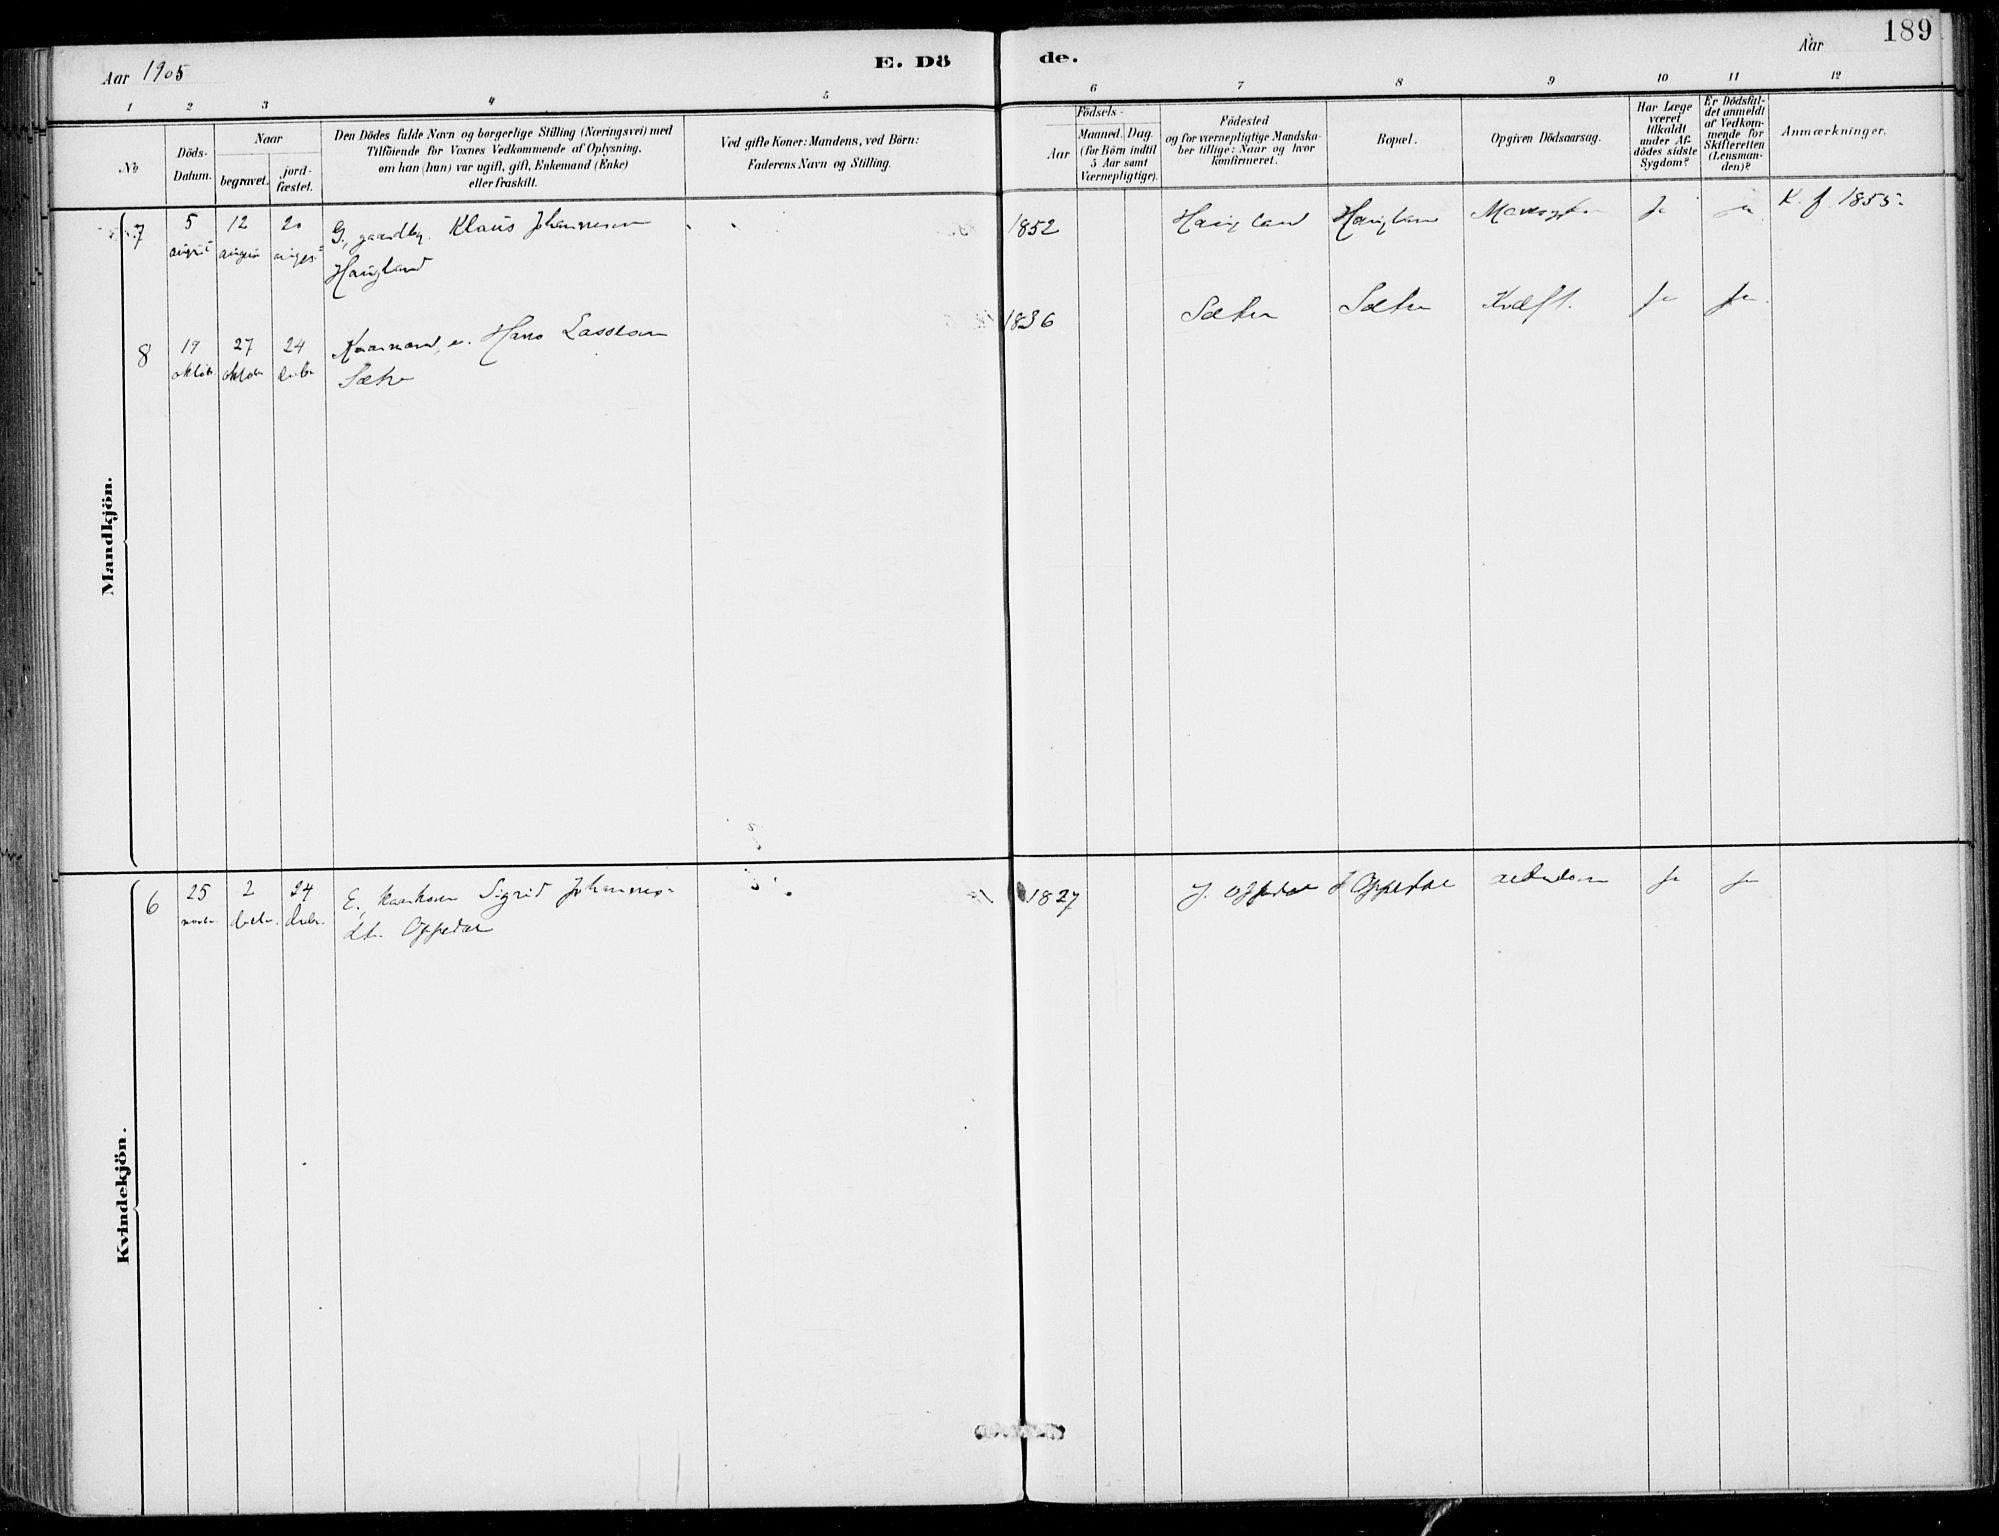 Aar 1905
E. Dö
de.
Aar
189
1 2 3 4 5 6 7 8 9 10 11 12
No
Döds-
Datum.
Naar
begravet.
jord-
fæstet.
Den Dödes fulde Navn og borgerlige Stilling (Næringsvei) med
Tilföiende for Voxnes Vedkommende af Oplysning,
om han (hun) var ugift, gift, Enkemand (Enke)
eller fraskilt.
Ved gifte Koner: Mandens, ved Börn:
Faderens Navn og Stilling.
Födsels-
Aar
Maaned. Dag.
(for Börn indtil
5 Aar samt
Værnepligtige).
Födested
og for værnepligtige Mandska-
ber tillige: Naar og hvor
konfirmeret.
Bopæl.
Opgiven Dödsaarsag.
Har Læge
været
tilkaldt
under Af-
dödes sidste
Sygdom?
Er Dödsfal-
det anmeldt
af Vedkom-
mende for
Skifteretten
(Lensman-
den)?
Anmærkninger.
Mandkjön.
7 5 12 20 G, gaardbr. Klaus Johannesen 1852 Haugland Haugland Mavesygdom Ja Ja K. f. 1855
august august august
Haugland
8 19 27 24 Kaarmand, e. Hans Lassesen 1836 Sætre Sætre Kræft. Ja Ja
oktober oktober decbr
Sætre
Kvindekjön.
6 25 2 24 E, kaarkone Sigrid Johannes- 1827 Y. Oppedal Y Oppedal Alderdom Ja Ja
novbr decbr. decbr.
dtr. Oppedal